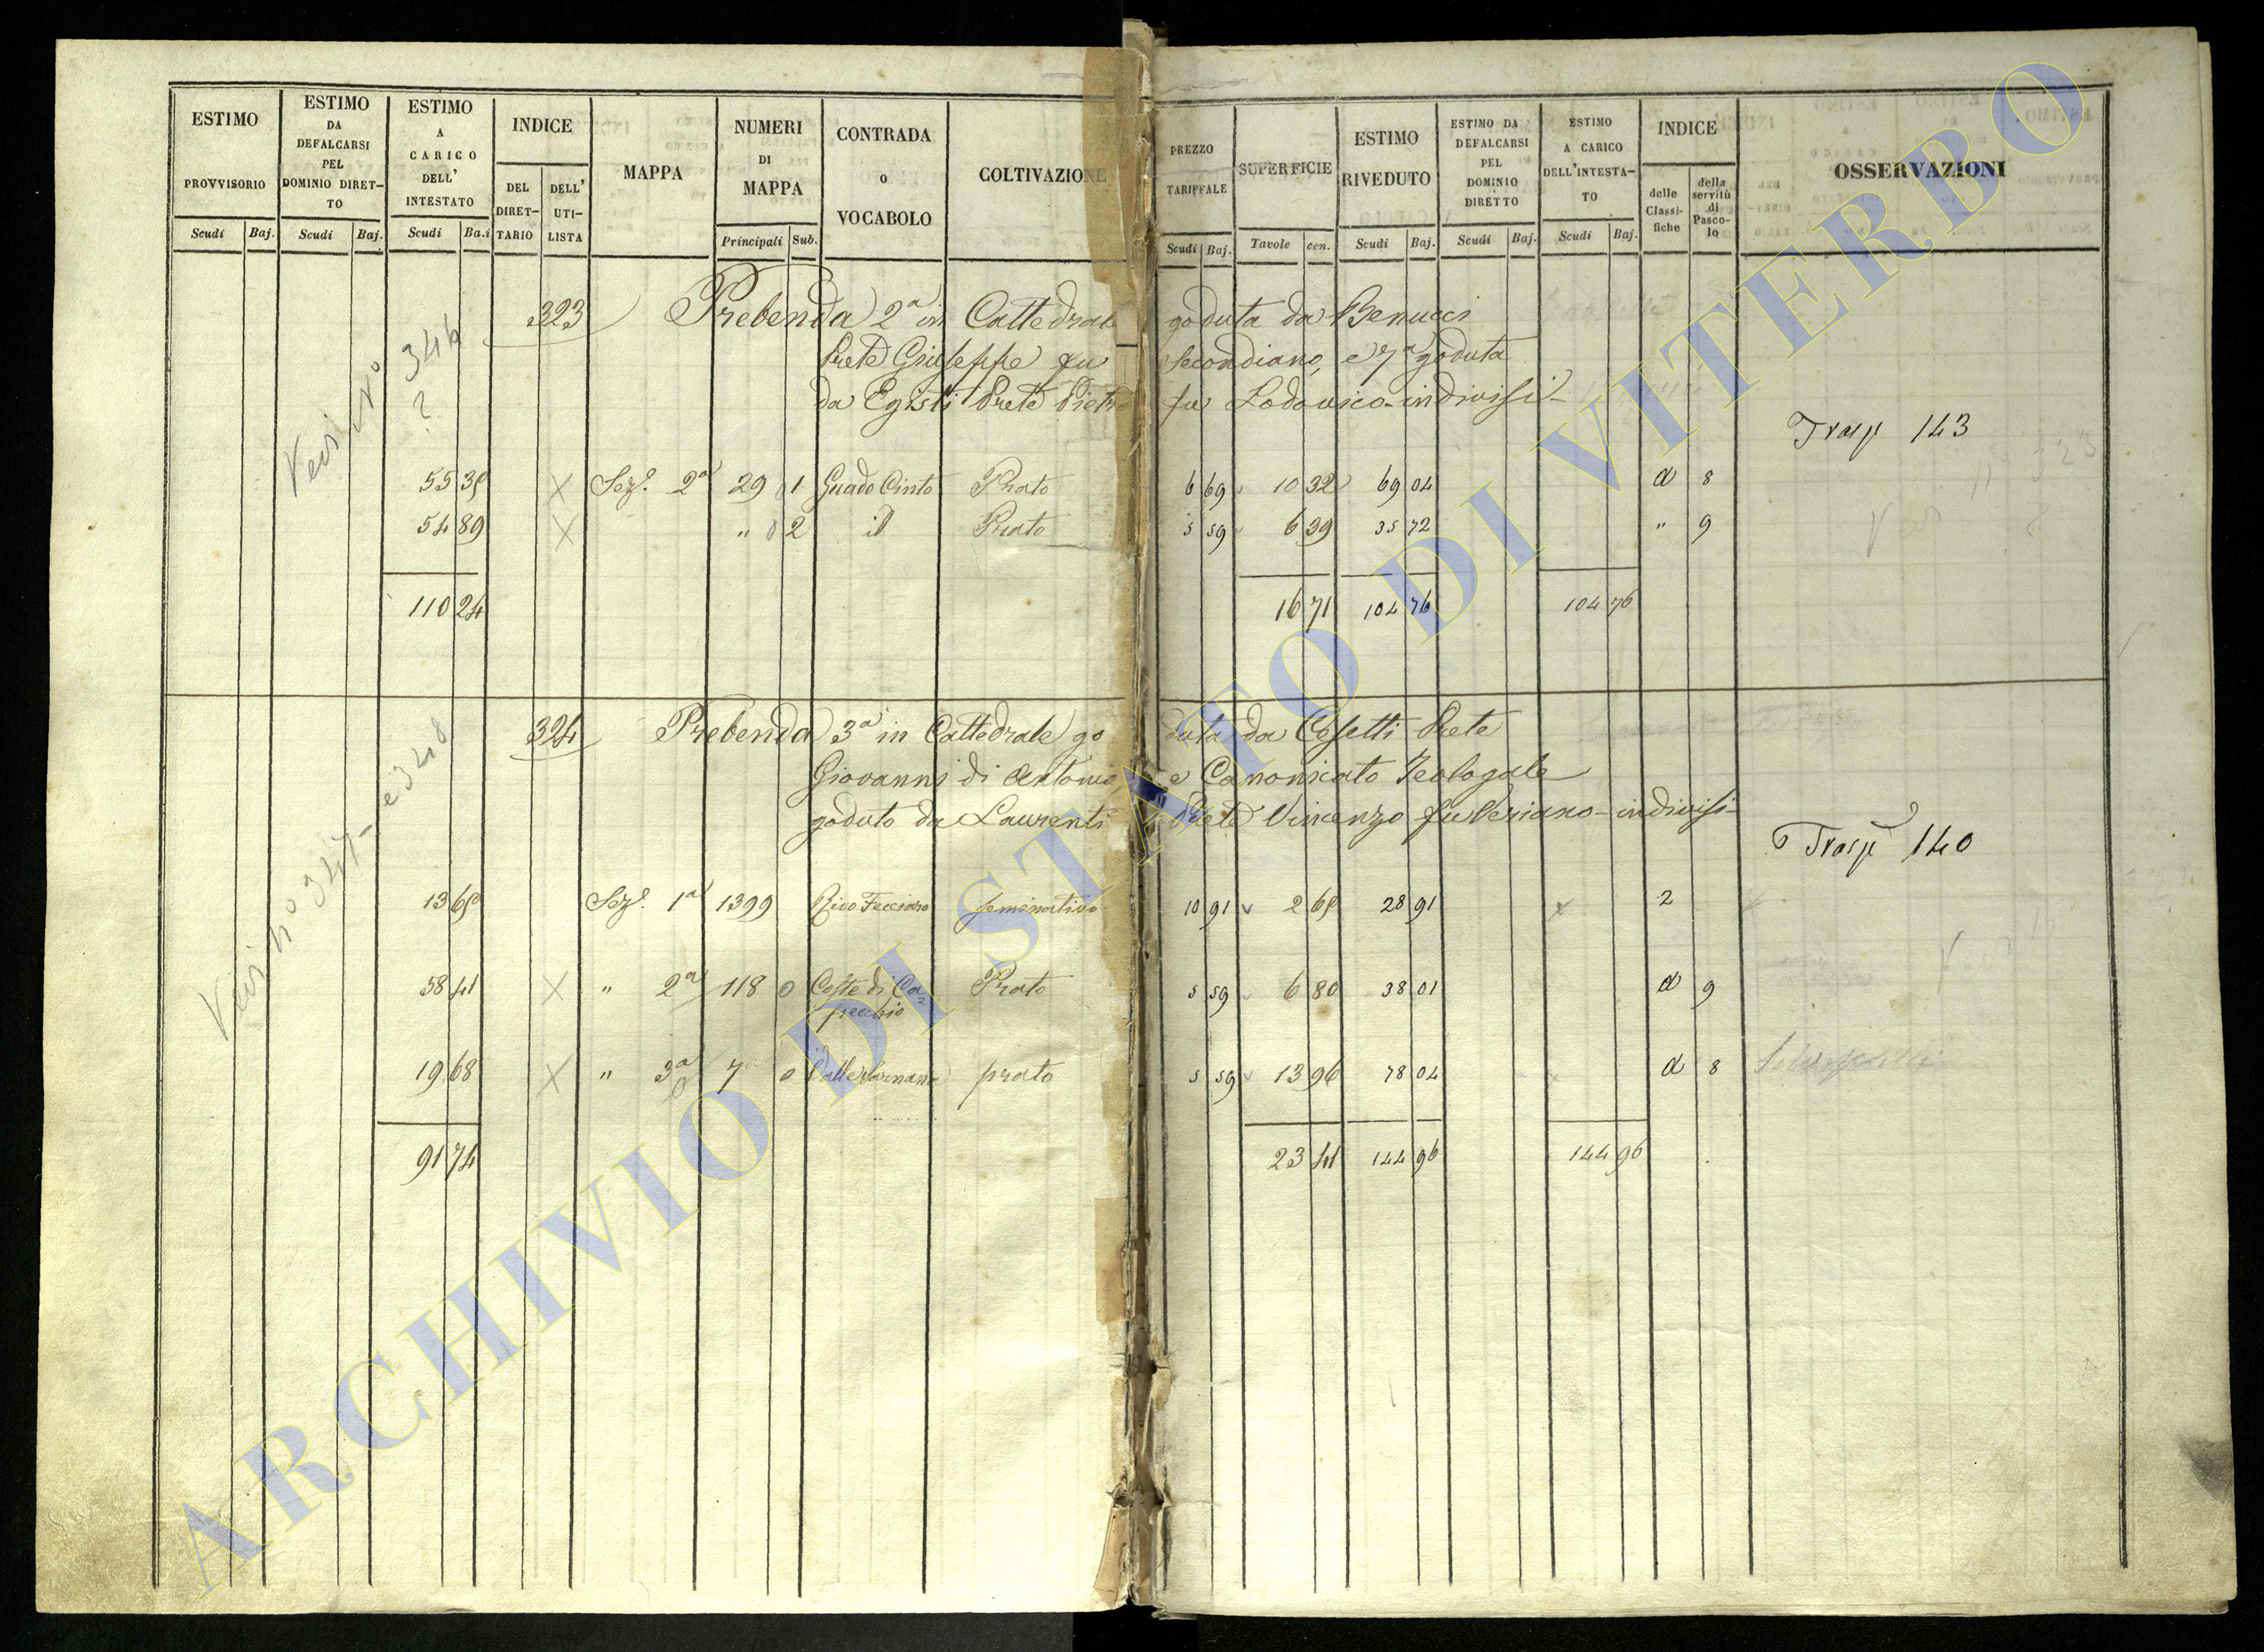 ESTIMO PROVVISORIO
ESTIMO DA DEFALCARSI PEL DOMINIO DIRET-TO
ESTIMO A CARICO DELL' INTESTATO
INDICE
DEL DIRET-TARIO
DELL' UTI-LISTA
MAPPA
NUMERI DI MAPPA
CONTRADA O VOCABOLO
COLTIVAZIONE
PREZZO TARIFFALE
SUPERFICIE
ESTIMO RIVEDUTO
ESTIMO DA DEFALCARSI PEL DOMINIO DIRETTO
ESTIMO A CARICO DELL'INTESTA-TO
INDICE
delle Classi-fiche
della servitù di Pasco-lo
OSSERVAZIONI
Scudi Baj. Scudi Baj. Scudi Ba.i Principali Sub. Scudi Baj. Tavole cen. Scudi Baj. Scudi Baj. Scudi Baj.
323 Prebenda 2a in Cattedrale goduta da Benucci
Prete Giuseppe fu Secondiano, e 7a goduta
da Egisti Prete Pietro fu Lodovico - indivisi -
346
?
Trasp 143
55 35 X Sez.e 2a 29 0 1 Guado Cinto Prato 6 69 10 32 69 04 d 8
54 89 X " 0 2 id Prato 5 59 6 39 35 72 " 9
110 24 16 71 104 76 104 76
324 Prebenda 3a in Cattedrale goduta da Cesetti Prete
Giovanni di Antonio, e Canonicato Teologale
goduto da Laurenti Prete Vincenzo fu Veriano - indivisi -
e 348
Trasp 140
13 65 Sez.e 1a 1399 Rivo Fecciaro seminativo 10 91 2 65 28 91 2
58 41 X " 2a 118 0 Coste di Ca=pecchio Prato 5 59 6 80 38 01 d 9
19 68 X " 3a 7 0 prato 5 59 13 96 78 04 d 8
91 74 23 41 144 96 144 96
ARCHIVIO DI STATO DI VITERBO